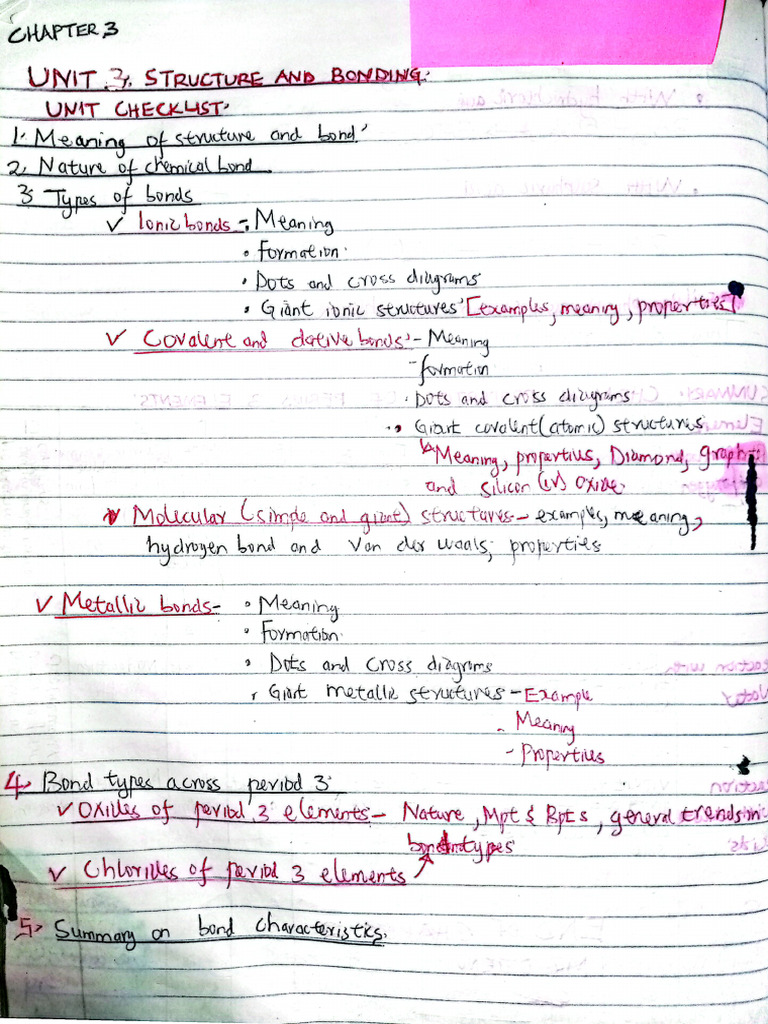 CHAPTER 3
UNIT 3. STRUCTURE AND BONDING.
UNIT CHECKLIST.
1. Meaning of structure and bond.
2. Nature of chemical bond.
3. Types of bonds
✓ Ionic bonds - Meaning
• Formation.
• Dots and cross diagrams
• Giant ionic structures [examples, meaning, properties]
✓ Covalent and dative bonds - Meaning
- formation
• Dots and cross diagrams
• Giant covalent (atomic) structures
Meaning, properties, Diamond, graph
and silicon (iv) oxide.
✓ Molecular (simple and giant) structures - examples, meaning,
hydrogen bond and Van der waals, properties
✓ Metallic bonds - • Meaning
• Formation.
• Dots and cross diagrams
• Giant metallic structures - Example
- Meaning
- Properties
4. Bond types across period 3.
✓ Oxides of period 3 elements - Nature, Mpt & Bpts, general trends in
bond types
✓ Chlorides of period 3 elements
5. Summary on bond characteristics.